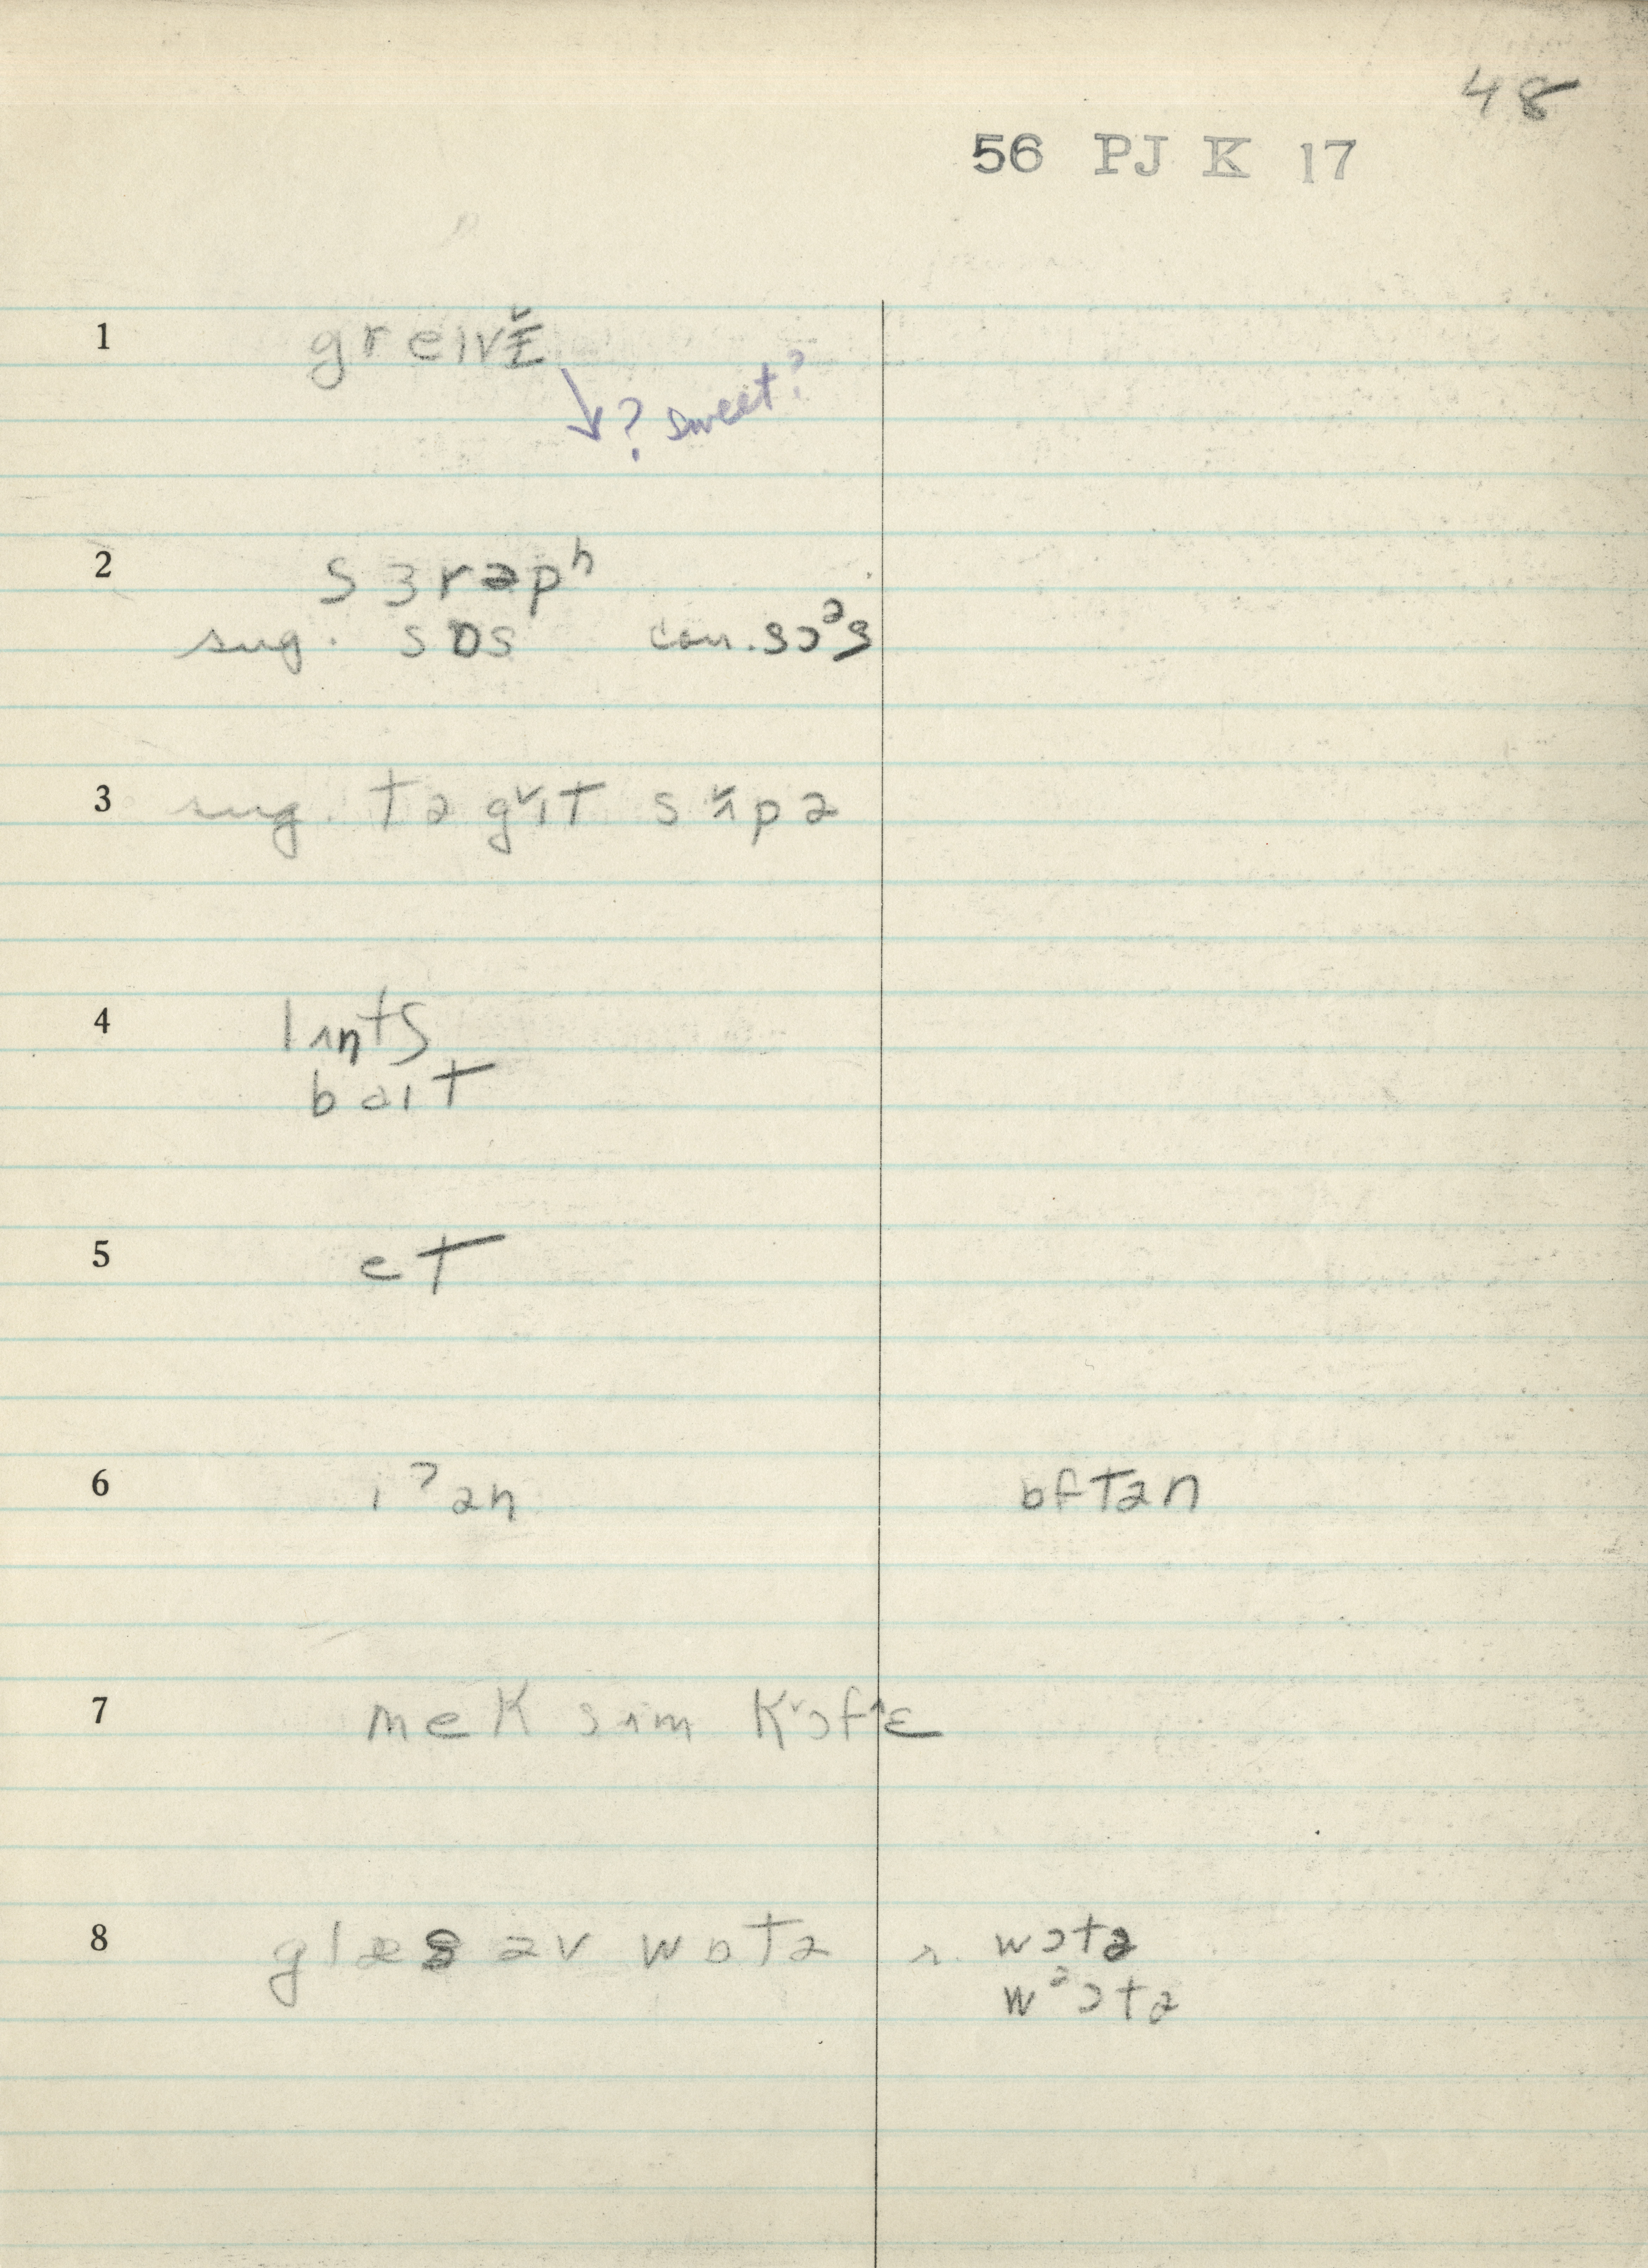 48
56 PJ K 17
1 greɪvɪ̌
? sweet?
2 sɜrəpʰ
sug. sɒs con. sɔᵊs
3 sug. tə gɪ̌t sʌ̌pə
4 lʌntʃ
baɪt
5 et
6 iʔən ɒftən
7 mek sʌm
8 glæs əv wɒtə r. wɔtə
wᵊɔtə